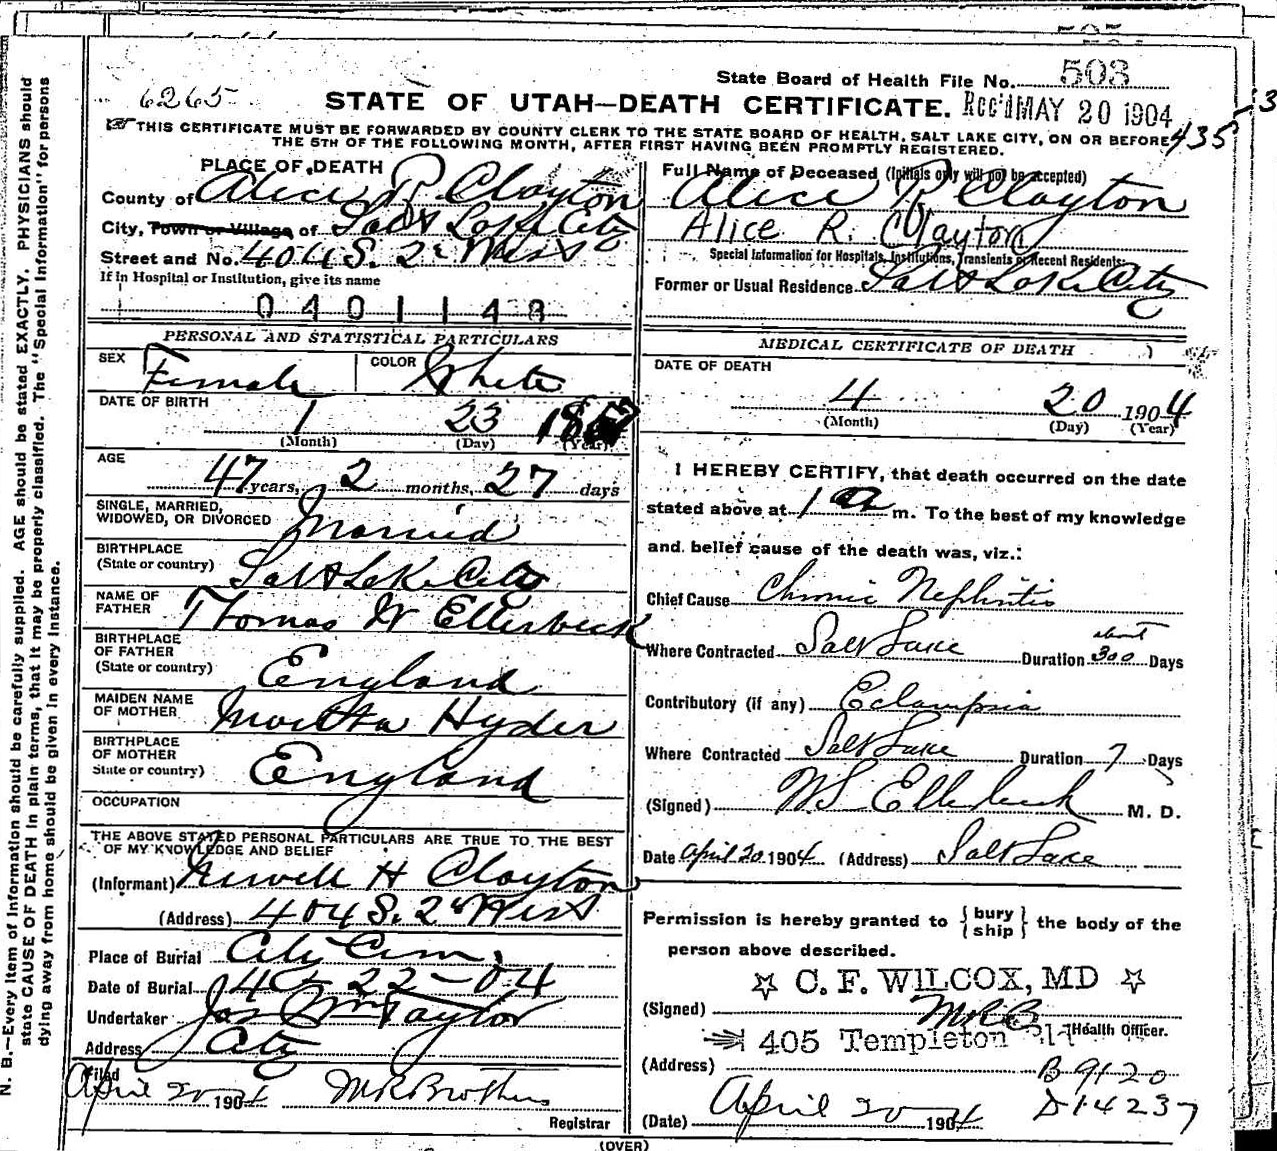 503
State Board of Health File No.
6265
STATE OF UTAH—DEATH CERTIFICATE. Rec'd MAY 20 1904
435
THIS CERTIFICATE MUST BE FORWARDED BY COUNTY CLERK TO THE STATE BOARD OF HEALTH, SALT LAKE CITY, ON OR BEFORE
THE 5TH OF THE FOLLOWING MONTH, AFTER FIRST HAVING BEEN PROMPTLY REGISTERED.
PLACE OF DEATH
County of Alice R Clayton
City, Town or Village of Salt Lake City
Street and No. 404 S. 2d West
If in Hospital or Institution, give its name
0401148
Full Name of Deceased (Initials only will not be accepted)
Alice R Clayton
Alice R. Clayton
Special Information for Hospitals, Institutions, Transients or Recent Residents:
Former or Usual Residence Salt Lake City
PERSONAL AND STATISTICAL PARTICULARS
SEX Female COLOR White
DATE OF BIRTH 1 23
(Month) (Day) (Year)
AGE 47 years, 2 months, 27 days
SINGLE, MARRIED,
WIDOWED, OR DIVORCED Married
BIRTHPLACE
(State or country) Salt Lake City
NAME OF
FATHER Thomas W Ellerbeck
BIRTHPLACE
OF FATHER
(State or country) England
MAIDEN NAME
OF MOTHER Martha Hyder
BIRTHPLACE
OF MOTHER
State or country) England
OCCUPATION
THE ABOVE STATED PERSONAL PARTICULARS ARE TRUE TO THE BEST
OF MY KNOWLEDGE AND BELIEF
(Informant) Newell H Clayton
(Address) 404 S. 2d West
Place of Burial City Cem.
Date of Burial 4-22-04
Undertaker Jos Wm Taylor
Address City
Filed
April 20 1904 M R Brothers
Registrar
MEDICAL CERTIFICATE OF DEATH
DATE OF DEATH
4 20 1904
(Month) (Day) (Year)
I HEREBY CERTIFY, that death occurred on the date
stated above at 1 a m. To the best of my knowledge
and belief cause of the death was, viz.:
Chief Cause Chronic Nephritis
Where Contracted Salt Lake Duration about 300 Days
Contributory (if any) Eclampsia
Where Contracted Salt Lake Duration 7 Days
(Signed) W S Ellerbeck M. D.
Date April 20 1904 (Address) Salt Lake
Permission is hereby granted to {bury ship} the body of the
person above described.
C. F. WILCOX, MD
(Signed) MRB
Health Officer.
405 Templeton
(Address) B-9120
(Date) April 20 1904 D 14237
(OVER)
N. B.—Every item of Information should be carefully supplied. AGE should be stated EXACTLY. PHYSICIANS should
state CAUSE OF DEATH in plain terms, that it may be properly classified. The "Special Information" for persons
dying away from home should be given in every instance.